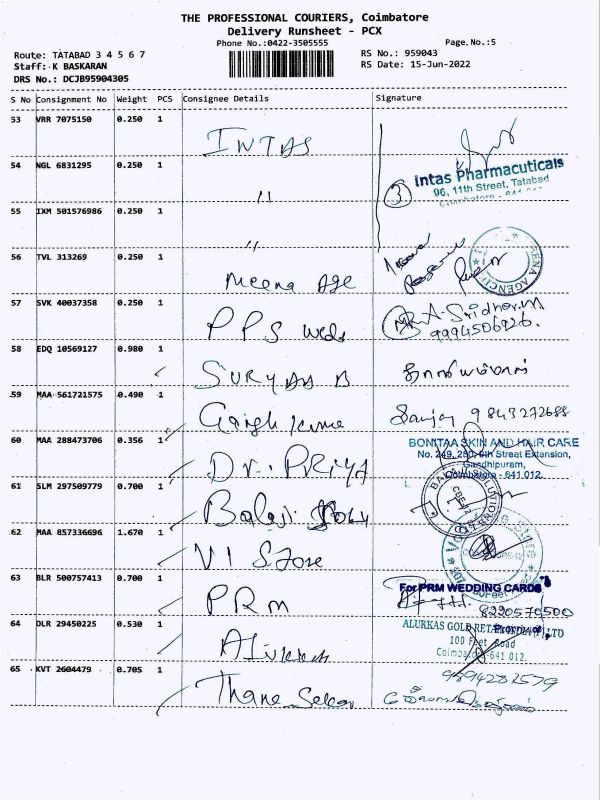 THE PROFESSIONAL COURIERS, Coimbatore
Delivery Runsheet - PCX
Phone No.:0422-3505555
Page.No.:5
Route: TATABAD 3 4 5 6 7
RS No.: 959043
Staff: K BASKARAN
RS Date: 15-Jun-2022
DRS No.: DCJB95904305
S No Consignment No Weight PCS Consignee Details Signature
53 VRR 7075150 0.250 1 INTAS
54 NGL 6831295 0.250 1 "
3 Intas Pharmaceuticals
96, 11th Street, Tatabad
55 IXM 501576986 0.250 1 "
56 TVL 313269 0.250 1 Meena Age
57 SVK 40037358 0.250 1 PPS
A. Sridharan
9994506926.
58 EDQ 10569127 0.980 1 SURYAA B
59 MAA 561721575 0.490 1
Sanjay 9843272688
60 MAA 288473706 0.356 1 Dr. PRIYA
BONITAA SKIN AND HAIR CARE
6th Street Extension,
Gandhipuram,
Coimbatore - 641 012.
61 SLM 297509779 0.700 1 Balaji
62 MAA 857336696 1.670 1 VI Store
63 BLR 500757413 0.700 1 PRM
For PRM WEDDING CARDS
8220570500
64 DLR 29450225 0.530 1
ALURKAS GOLD
LTD
100 Feet Road
Coimbatore-641 012.
65 KVT 2604479 0.705 1 Thane Sekar